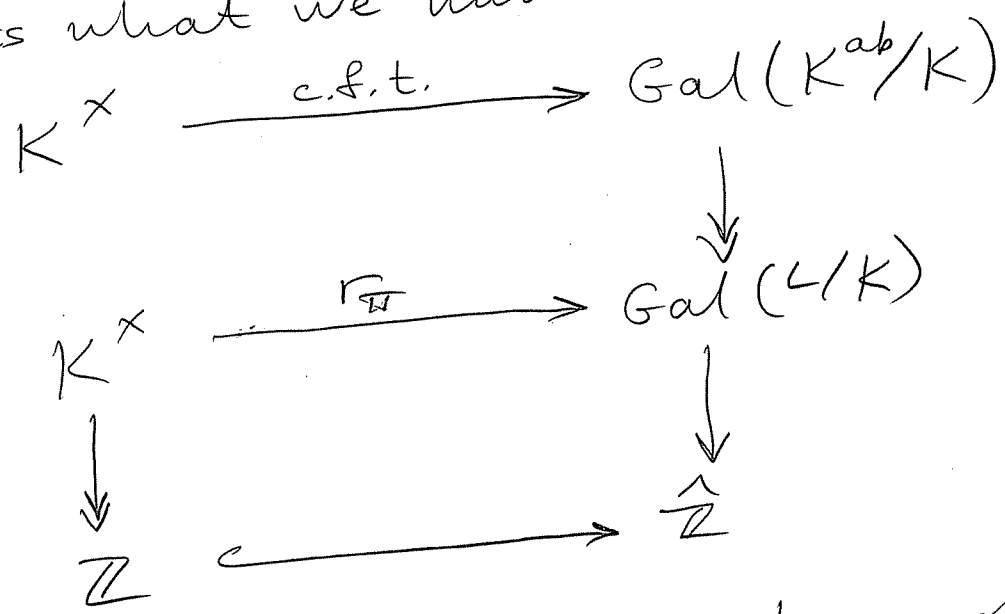 s what we
c.f.t.
K^× → Gal(K^ab/K)
r_π
K^× → Gal(L/K)
ℤ ↪ \hat{ℤ}